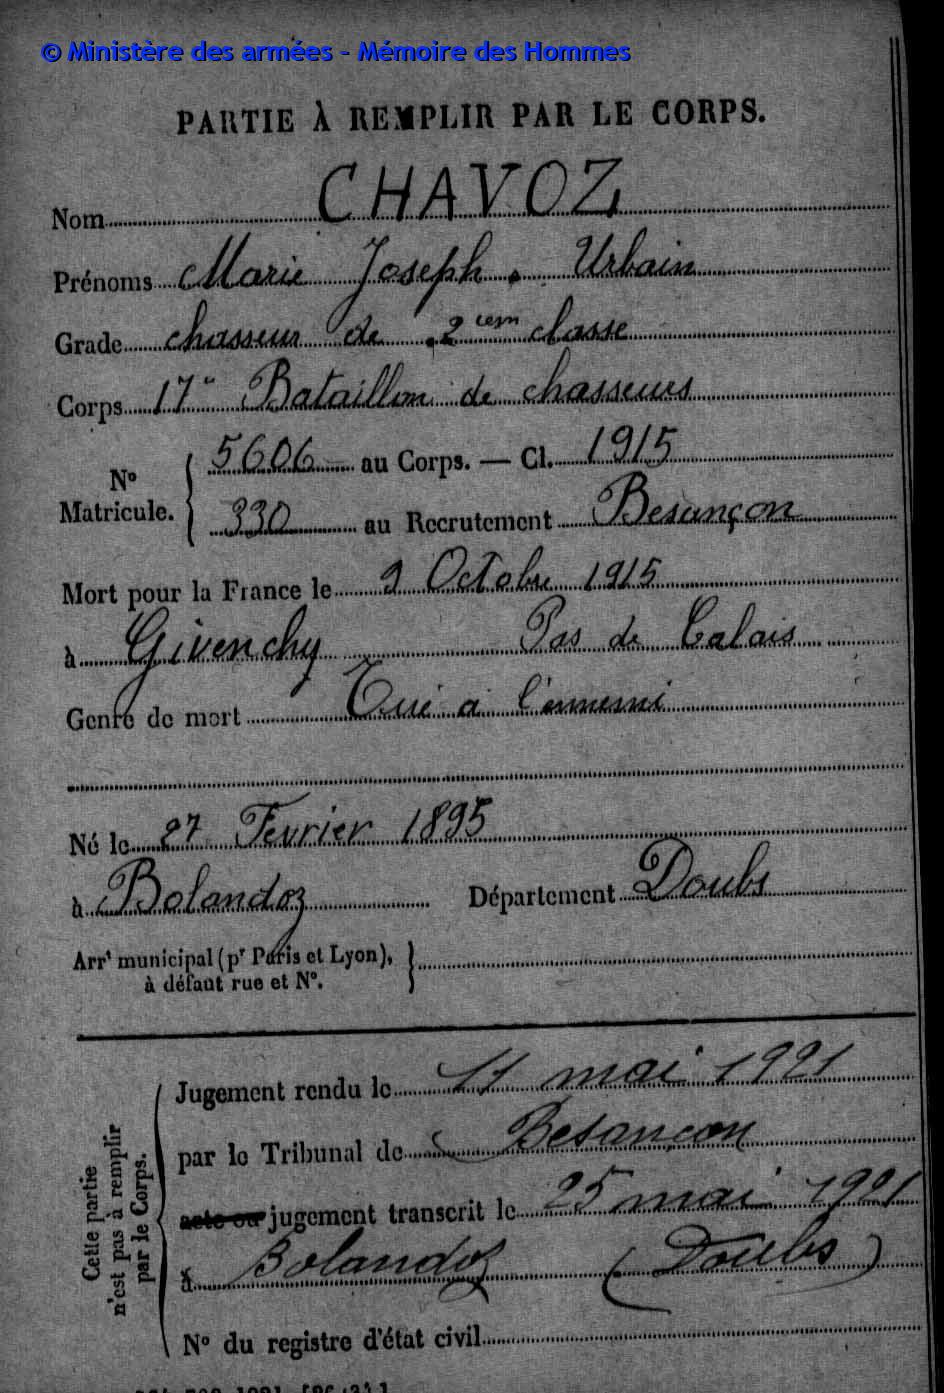 © Ministère des armées - Mémoire des Hommes
PARTIE À REMPLIR PAR LE CORPS.
Nom CHAVOZ
Prénoms Marie Joseph. Urbain
Grade chasseur de 2 iem classe
Corps 17e Bataillon de chasseurs
N° Matricule. { 5606 au Corps. — Cl. 1915
330 au Recrutement Besançon
Mort pour la France le 9 Octobre 1915
à Givenchy Pas de Calais
Genre de mort Tué a l'ennemi
Né le 27 Fevrier 1895
à Bolandoz Département Doubs
Arrt municipal (pr Paris et Lyon), }
à défaut rue et N°.
Cette partie
n'est pas à remplir
par le Corps.
Jugement rendu le 11 mai 1921
par le Tribunal de Besançon
acte ou jugement transcrit le 25 mai 1921
à Bolandoz (Doubs)
N° du registre d'état civil